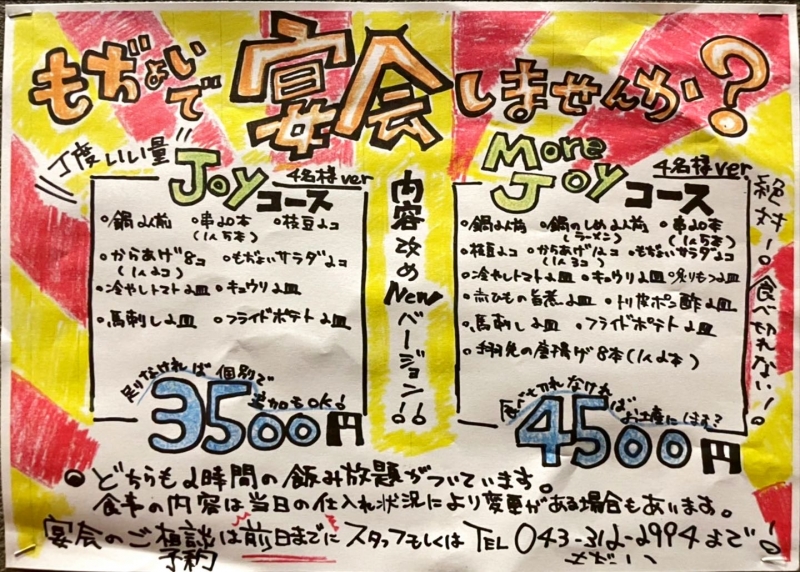 もぢょいで宴会しませんか?
丁度いい量
Joyコース
4名様ver
・鍋2人前 ・串20本(1人5本) ・枝豆2コ
・からあげ8コ(1人2コ) ・もぢょいサラダ2コ
・冷やしトマト2皿 ・キュウリ2皿
・馬刺し2皿 ・フライドポテト2皿
足りなければ個別で追加もOK!
3500円
内容改めNewバージョン!!
More Joyコース
4名様ver
絶対!食べきれない!。
・鍋2人前 ・鍋のしめ2人前(ラーメン) ・串20本(1人5本)
・枝豆2コ ・からあげ12コ(1人3コ) ・もぢょいサラダ2コ
・冷やしトマト2皿 ・キュウリ2皿 ・炙りもつ2皿
・赤ひもの旨煮2皿 ・トリ皮ポン酢2皿
・馬刺し2皿 ・フライドポテト2皿
・手羽先の唐揚げ8本(1人2本)
食べきれなければお土産にします?
4500円
・どちらも2時間の飲み放題がついています。
食事の内容は当日の仕入れ状況により変更がある場合もあります。
宴会のご相談は前日までにスタッフもしくはTEL 043-312-2994まで!。
予約